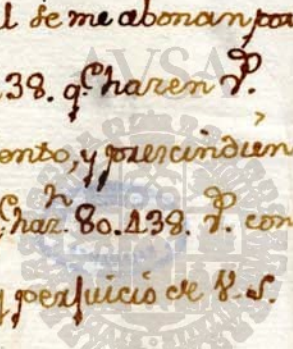 l se me abonan por
38. q.e hazen r.s
ento, y prescindien
haz.n 80.438. r.s con
perjuicio de V. S.
AVSA